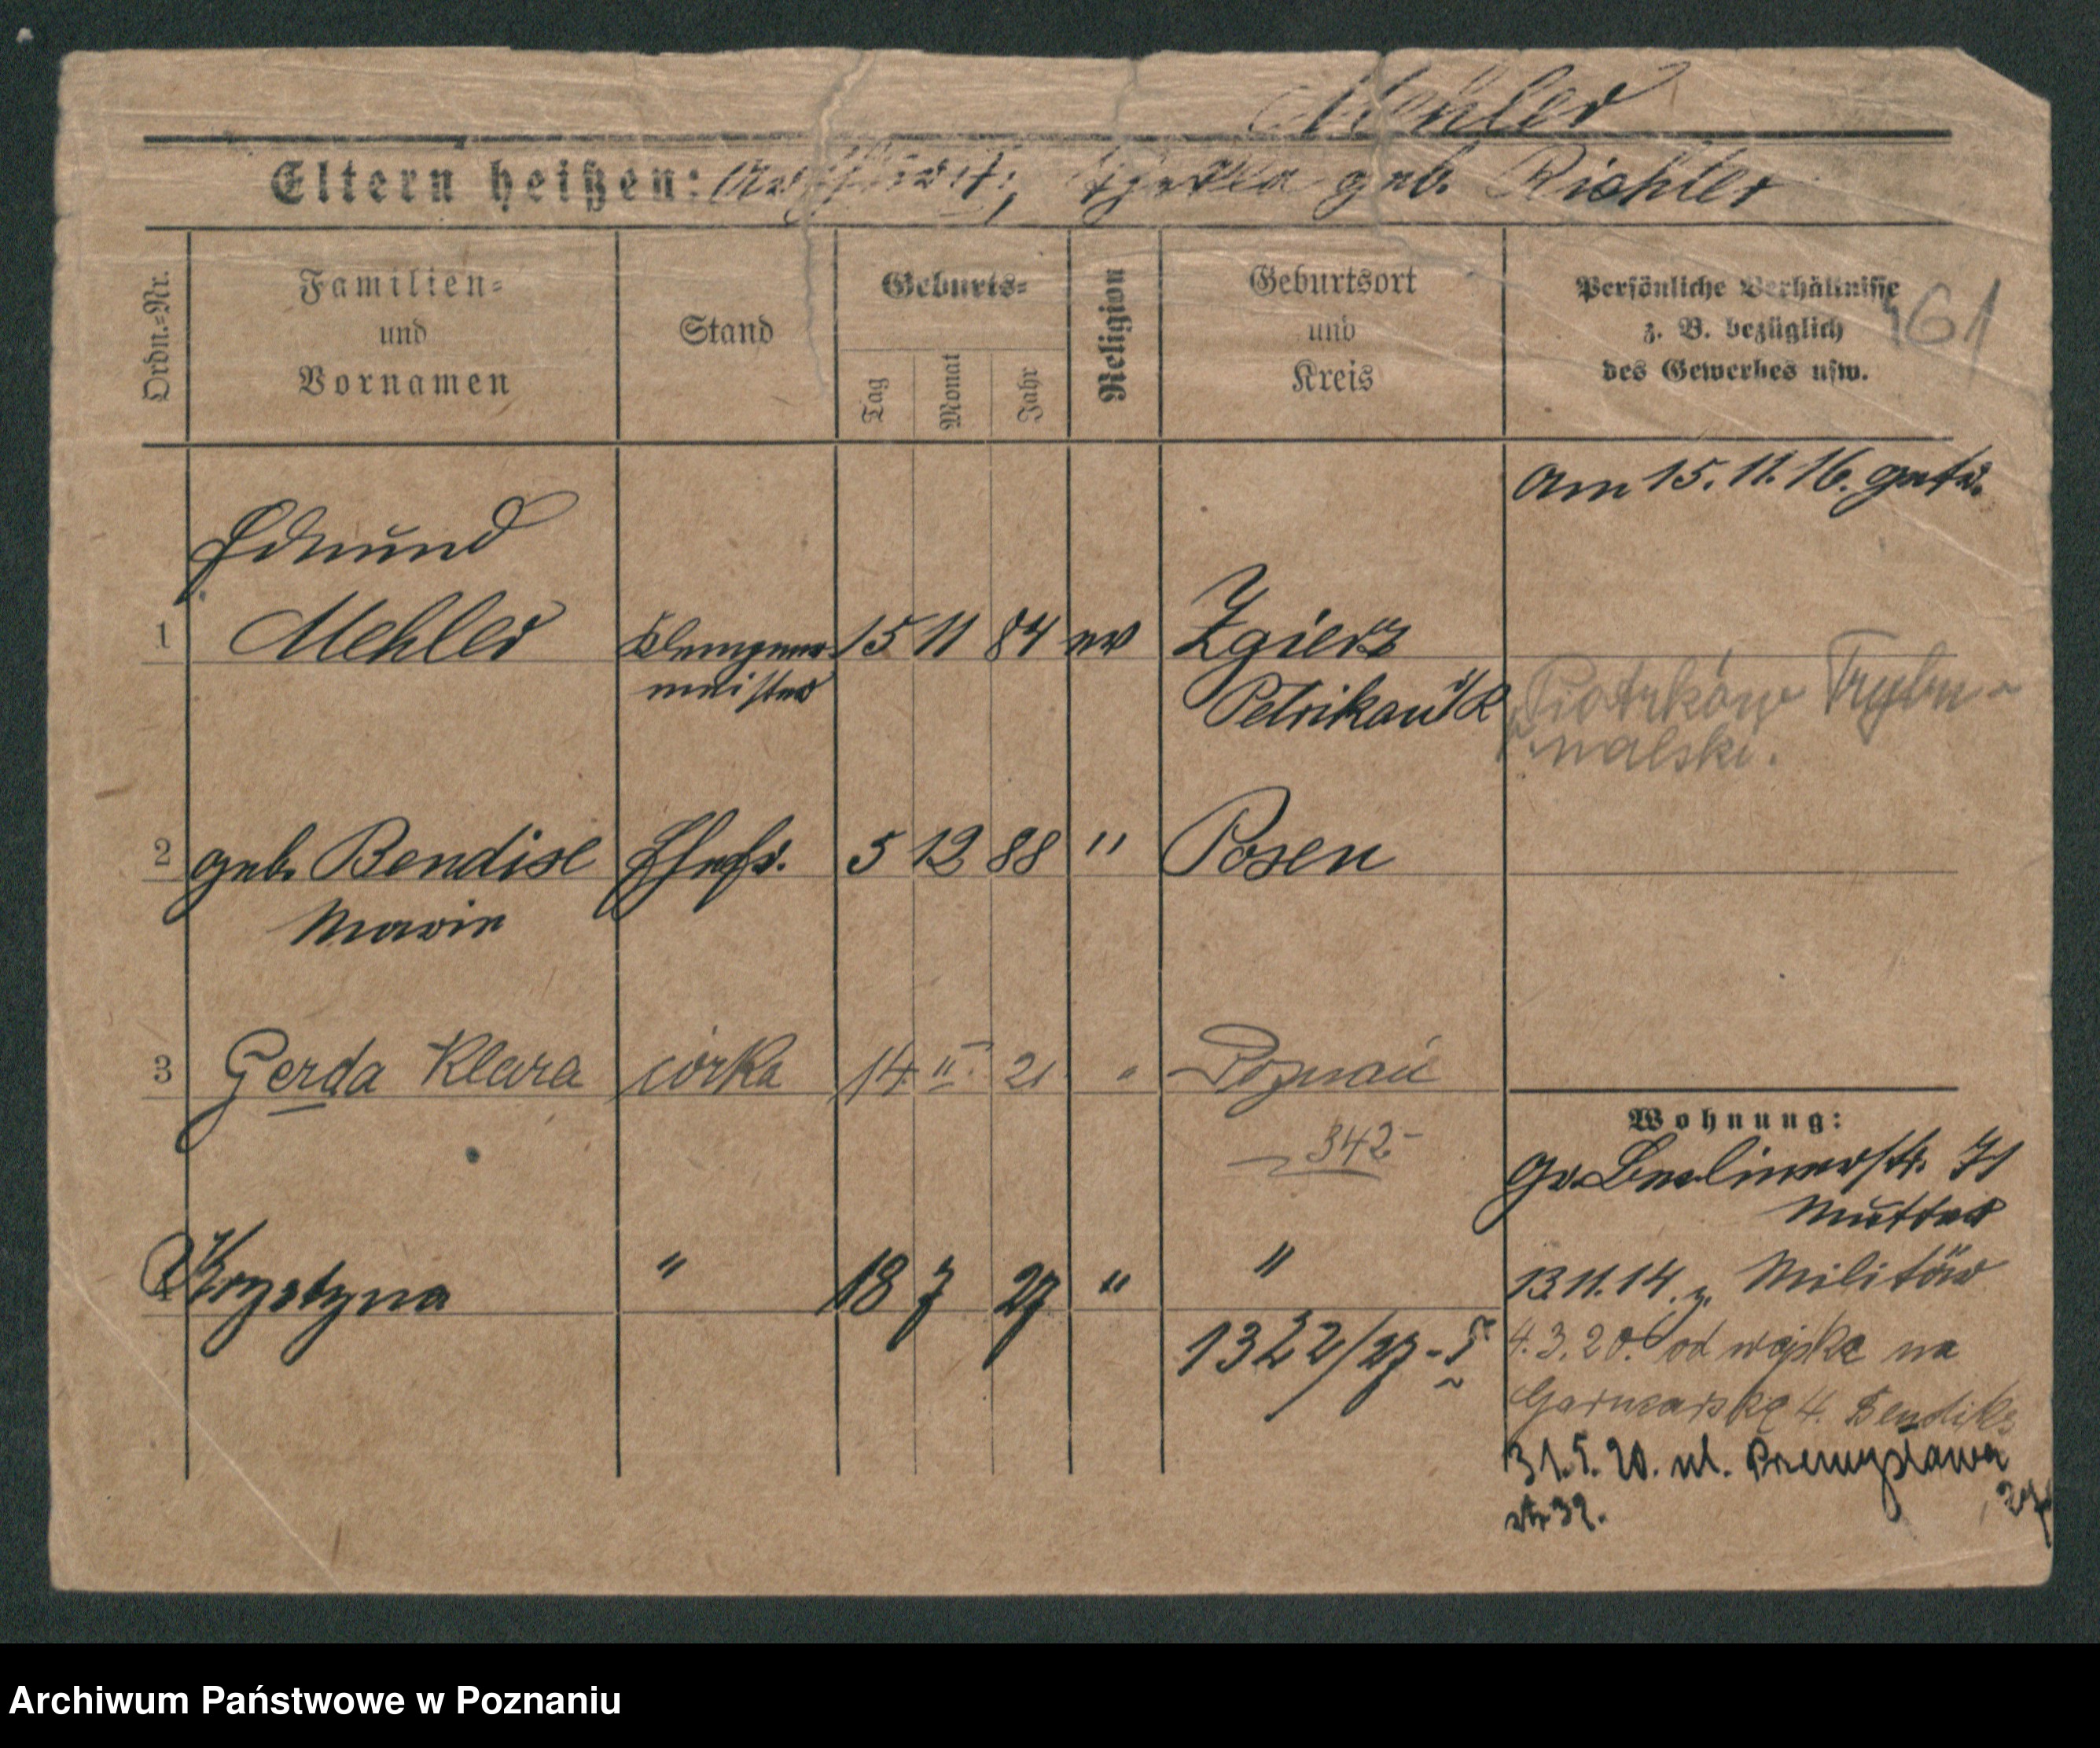 Mehler
Eltern heißen: geb. Richter
Ordn.-Nr.
Familien-
und
Vornamen
Stand
Geburts-
Tag
Monat
Jahr
Religion
Geburtsort
und
Kreis
Persönliche Verhältnisse
z. B. bezüglich
des Gewerbes usw.
61
am 15.11.16. getr.
Edmund
1 Mehler Klempner- 15 11 84 ev Zgierz
meister Petrikau i/R
Piotrków Trybu-
nalski.
2 geb. Bendise Ehefr. 5 12 88 " Posen
Marie
3 Gerda Klara córka 14. II. 21 " Poznań
342-
Wohnung:
Gr. Berlinerstr. 71
Mutter
Krystyna " 18 7 27 " "
13.11.14. z. Militär
1322/27-
4.3.20. od wojska na
Garncarska 4. Bendiks
31.5.20. ul. Przemysława
39.
27
Archiwum Państwowe w Poznaniu